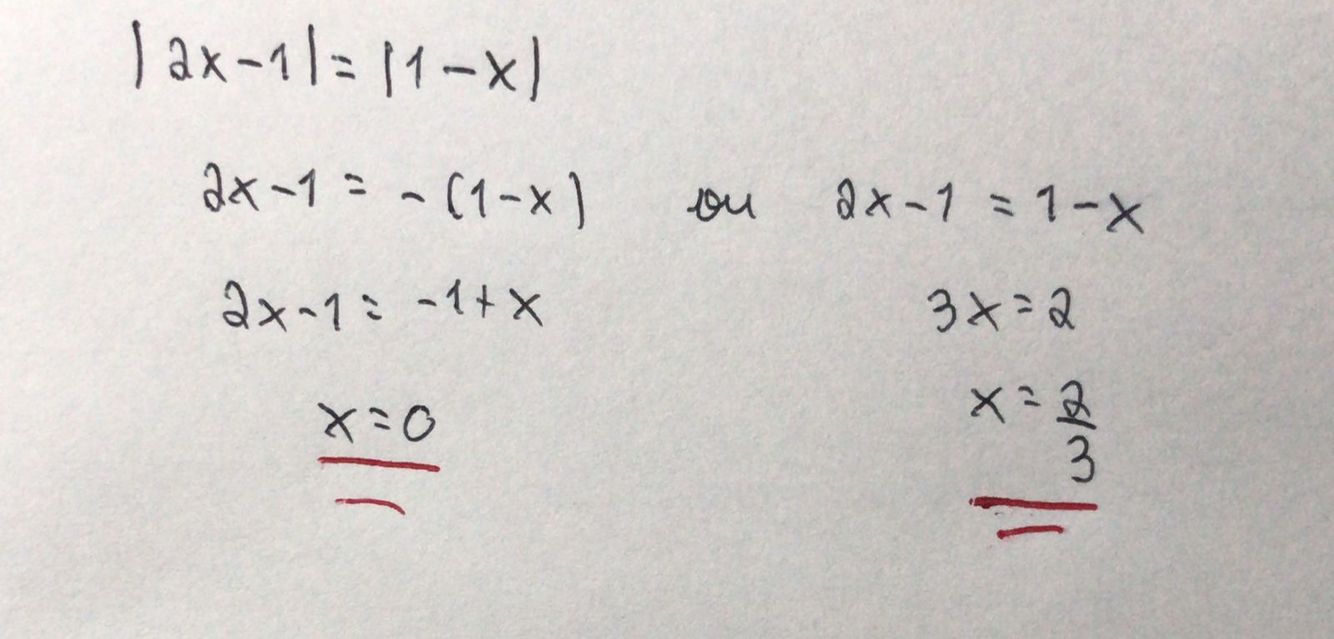 |2x-1|=|1-x|
2x-1=-(1-x) ou 2x-1=1-x
2x-1=-1+x 3x=2
x=0 x=2/3